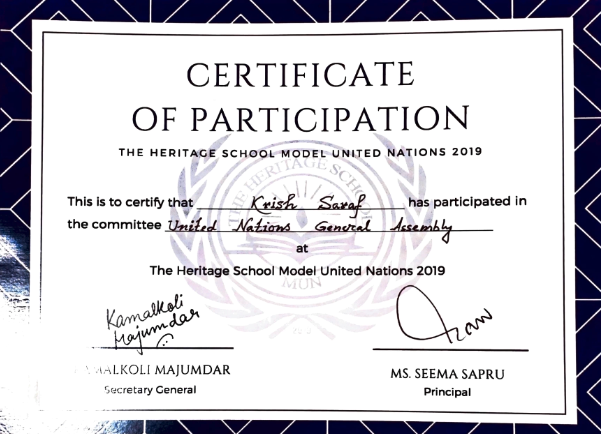 CERTIFICATE
OF PARTICIPATION
THE HERITAGE SCHOOL MODEL UNITED NATIONS 2019
THE HERITAGE SCHOOL
This is to certify that Krish Saraf has participated in
the committee United Nations General Assembly
at
The Heritage School Model United Nations 2019
MUN
Kamalkoli
Majumdar
KAMALKOLI MAJUMDAR
Secretary General
MS. SEEMA SAPRU
Principal